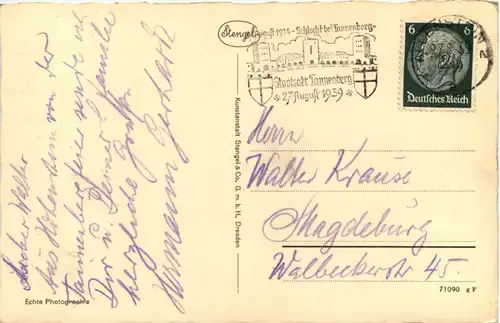 Lieber Walter
Aus Hohenstein von der
Tannenbergfeier sende ich
Dir u. Deiner l. Familie
herzliche Grüße
Hermann Gerhardt
Echte Photographie
Kunstanstalt Stengel & Co., G. m. b. H., Dresden
Stengel
August 1914 - Schlacht bei Tannenberg -
Staatsakt Tannenberg
27. August 1939
6 6
Deutsches Reich
Herrn
Walter Krause
Magdeburg
Walbeckerstr 45.
71090 g F